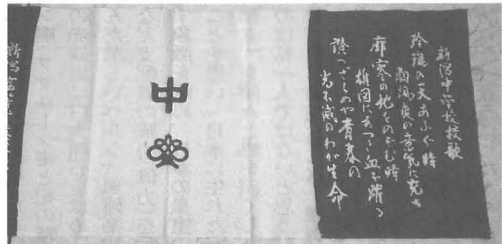 新潟中学校校歌
玲瓏の天あふぐ時
胸颯爽の意気に充ち
廓寥の地をのぞむ時
雄図にあつき血ぞ燿る
讃へざらめや青春の
光不滅のわが生命
中